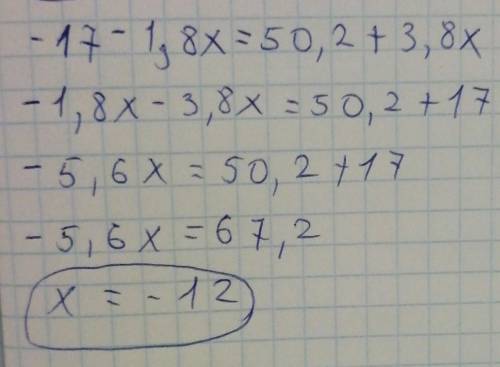 -17-1,8x=50,2+3,8x
-1,8x-3,8x=50,2+17
-5,6x=50,2+17
-5,6x=67,2
x=-12